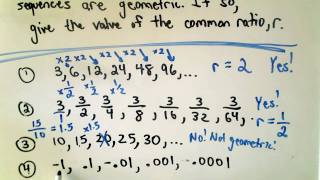 sequences are geometric. If so,
give the value of the common ratio, r.
×2 ×2 ×2 ×2 ×2
① 3, 6, 12, 24, 48, 96, ... r = 2 Yes!
×1/2 ×1/2 ×1/2
② 3/1, 3/2, 3/4, 3/8, 3/16, 3/32, 3/64, ... r = 1/2 Yes!
15/10 = 1.5 ×1.5
③ 10, 15, 20, 25, 30, ... No! Not geometric!
④ -1, .1, -.01, .001, -.0001